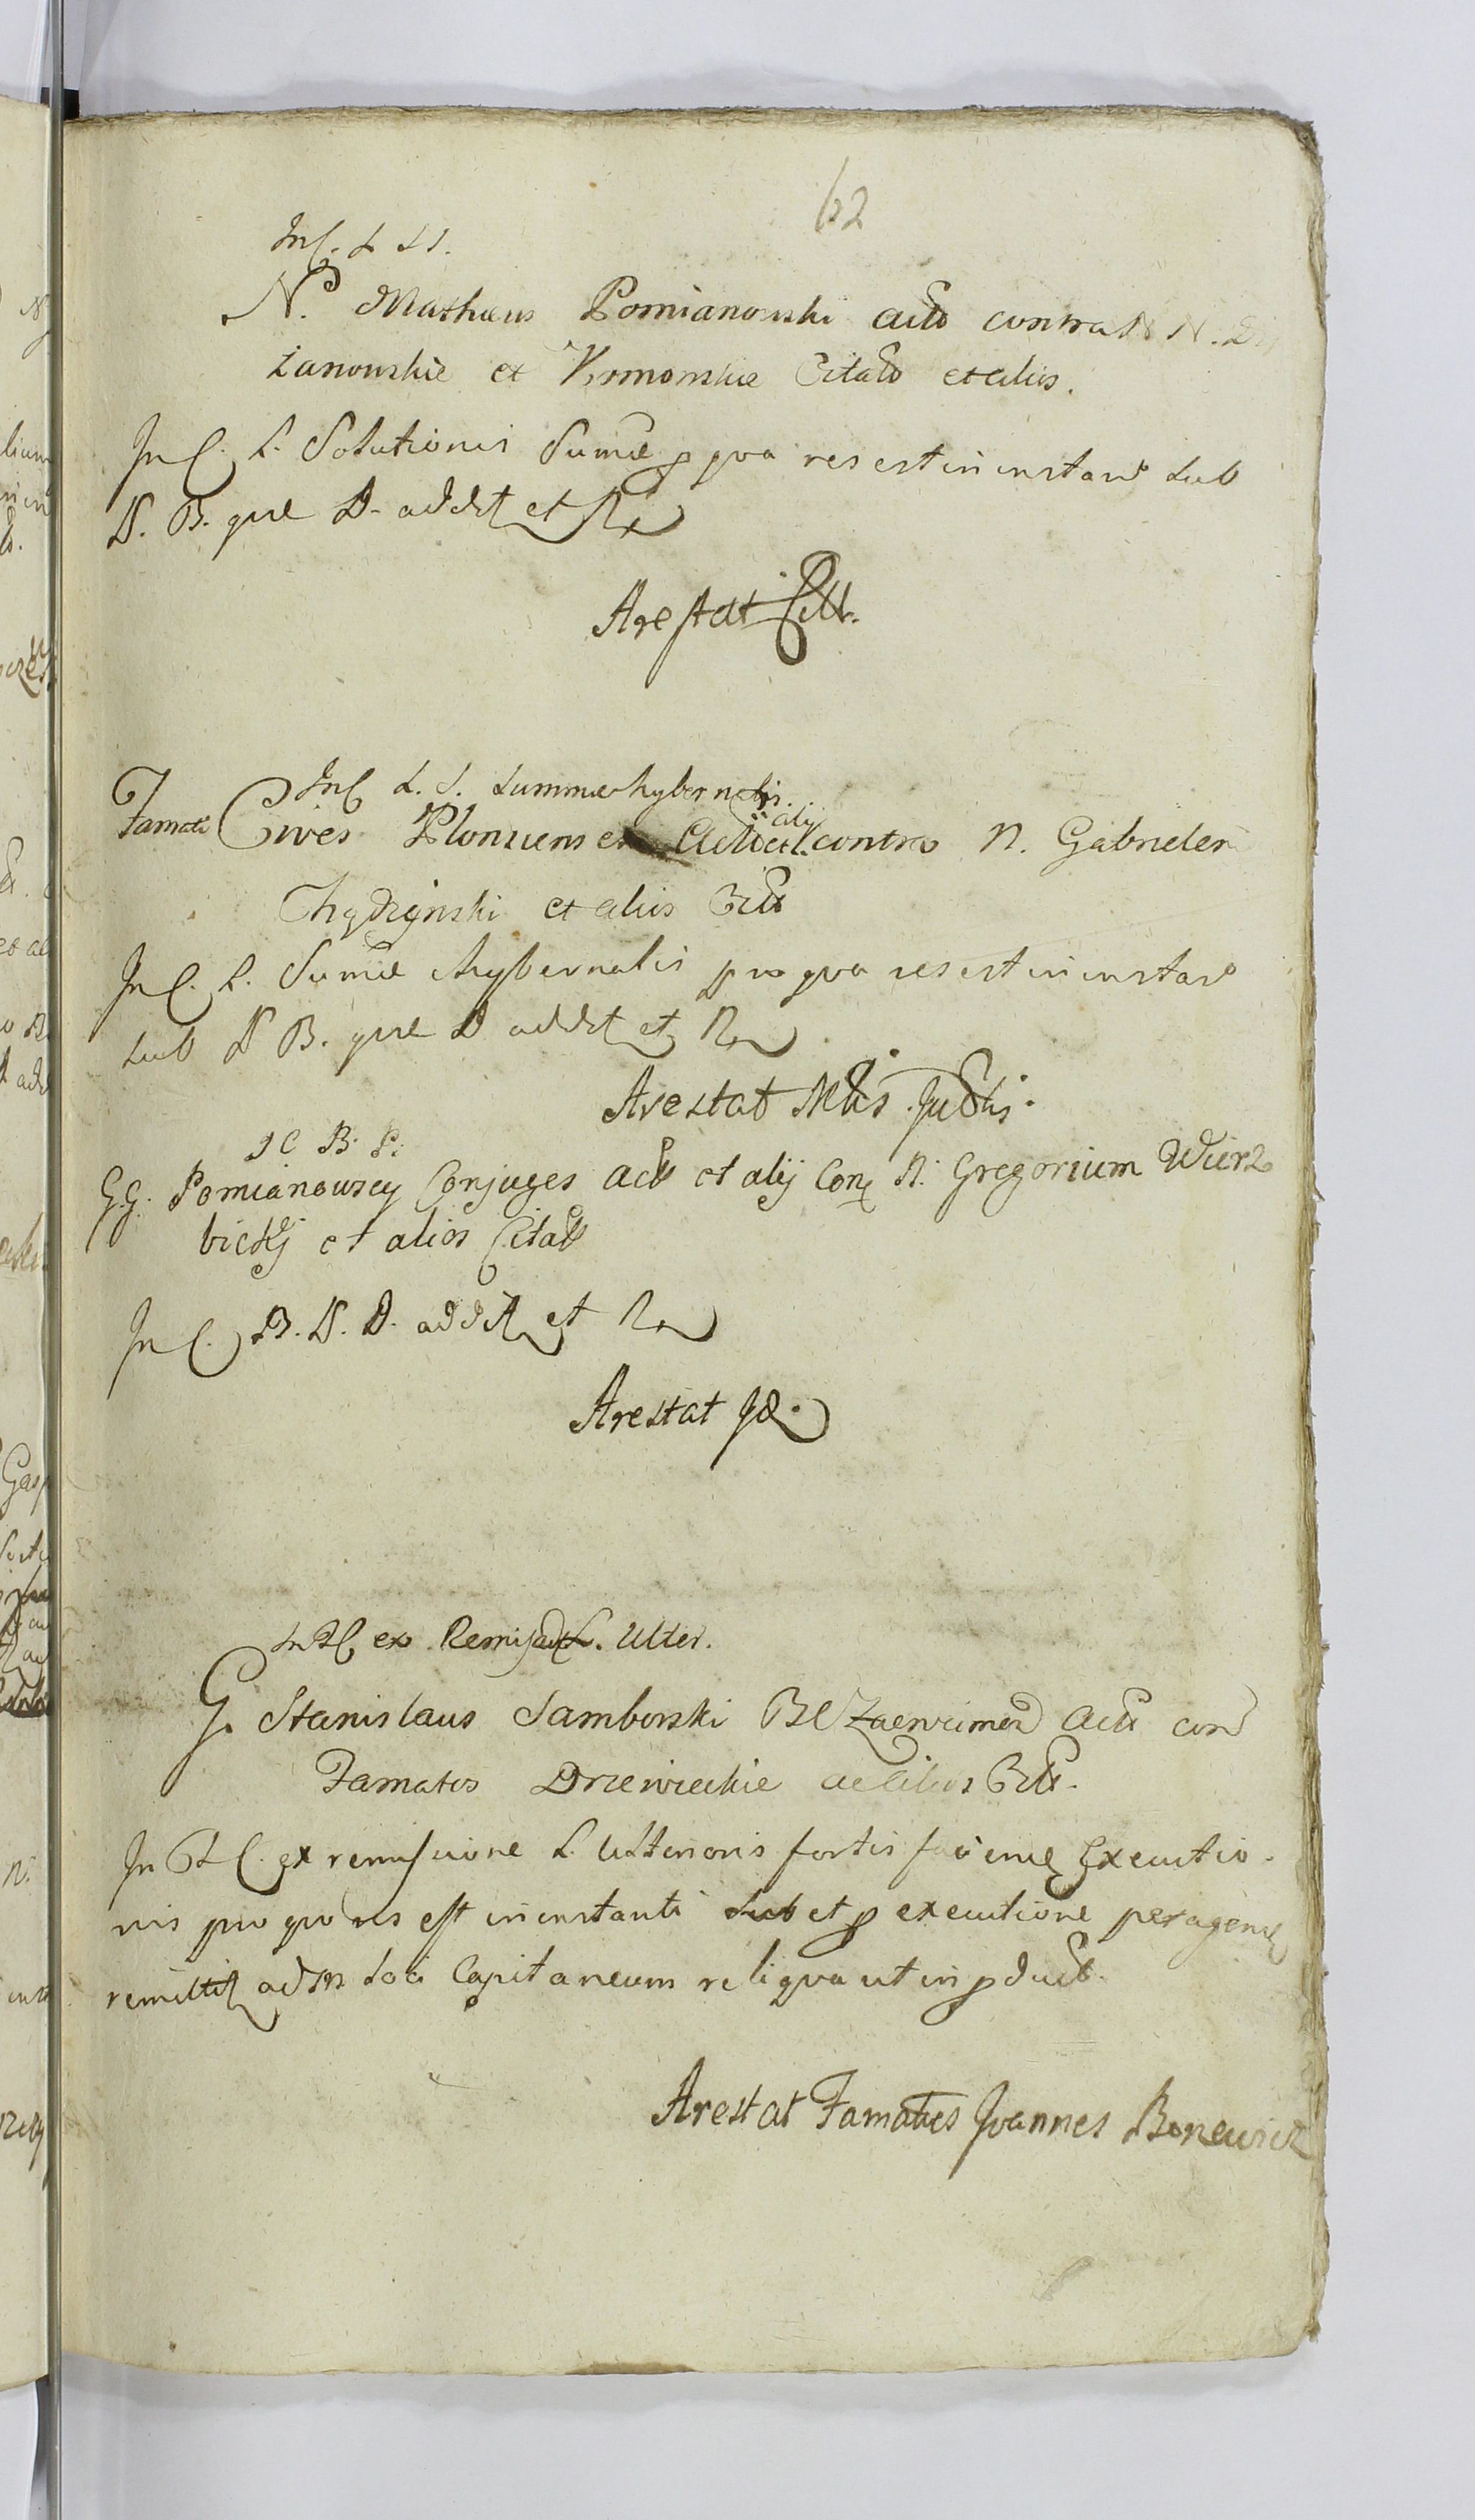 62
InC. L S S.
N. Mathæus Pomianowski acto contra N N.
zanowskie et Kromonskie Citato et alios.
In C. L. Solutionis Sumæ p qua res est in instan sub
N. B. que D. addit et R
Arestat Citt.
InC L. S. Summæ hybernalis.
Famati Cives Plonienses Act et alij contra N. Gabrielem
Chydzynski et alios Citt
In C. L. Sumæ hybernalis pro qua res est in instan
sub N B. que D addit et R
Arestat Mtis Judtis.
I C B. P.
G.G. Pomianowscy Conjuges act et alij Con N. Gregorium Wierz
bickij et alios Citatt
In C. B. N. D. addit et R
Arestat Id.
In PC ex Remis L. Ulter.
G. Stanislaus Samborski BC Act con
Famatos Drzewieckie ac alios Citt.
In P C. ex remissione L. Ulterioris fortis faciende Executio-
nis pro quo res est in instanti sub et p executione peragende
remittit ad M Loci Capitaneum reliqua ut in p duct.
Arestat Famatus Joannes Bonewicz